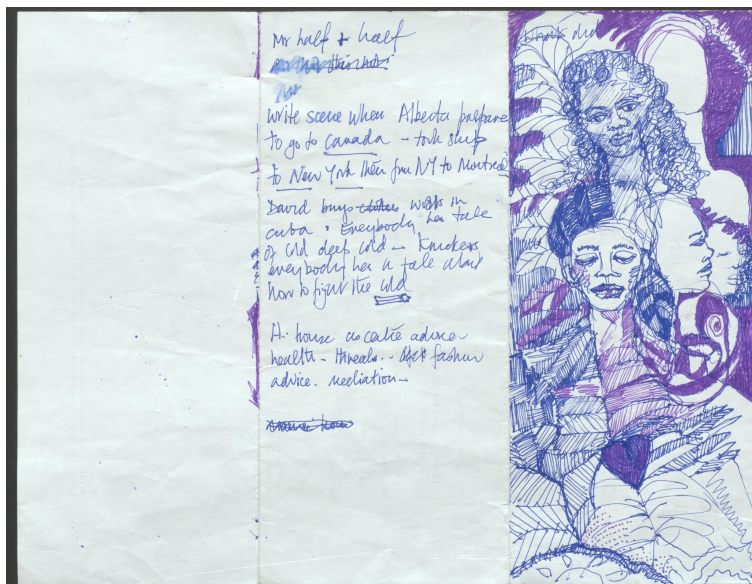 Mr half + half
Mr
write scene when Alberta prepare
to go to Canada - took ship
to New York then from NY to Montreal
David buys clothes works in
Cuba. Everybody has tale
of cold deep cold - Knickers
everybody has a tale about
how to fight the cold
A. house as centre advice
health - threats.. fashion
advice. mediation -
did